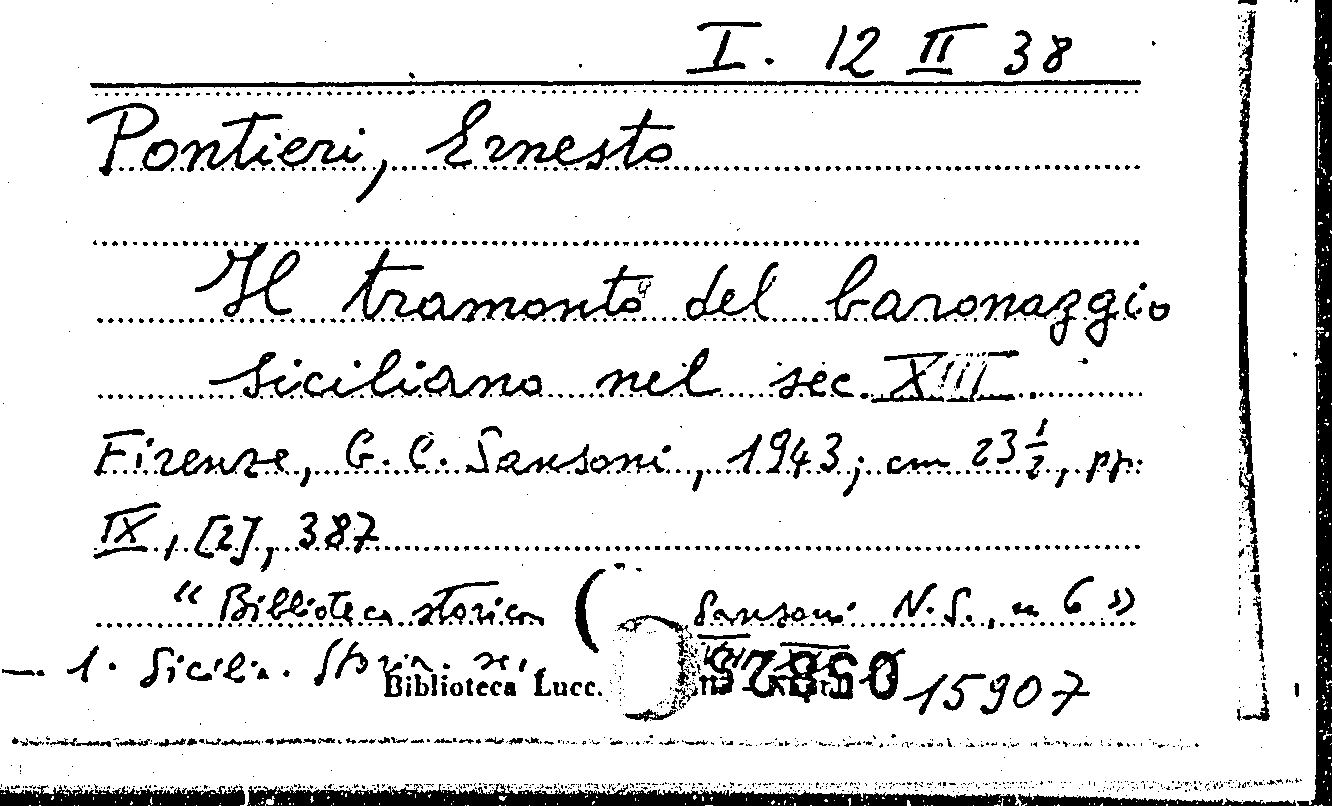 I. 12 II 38
Pontieri, Ernesto
Il tramonto del baronaggio
siciliano nel sec. XIII
Firenze, G. C. Sansoni, 1943; cm 23½, pp.
IX, [2], 387
“Biblioteca storica Sansoni N.S., n 6»
1. Sicilia. Storia. sec.
Biblioteca Lucc.
15907